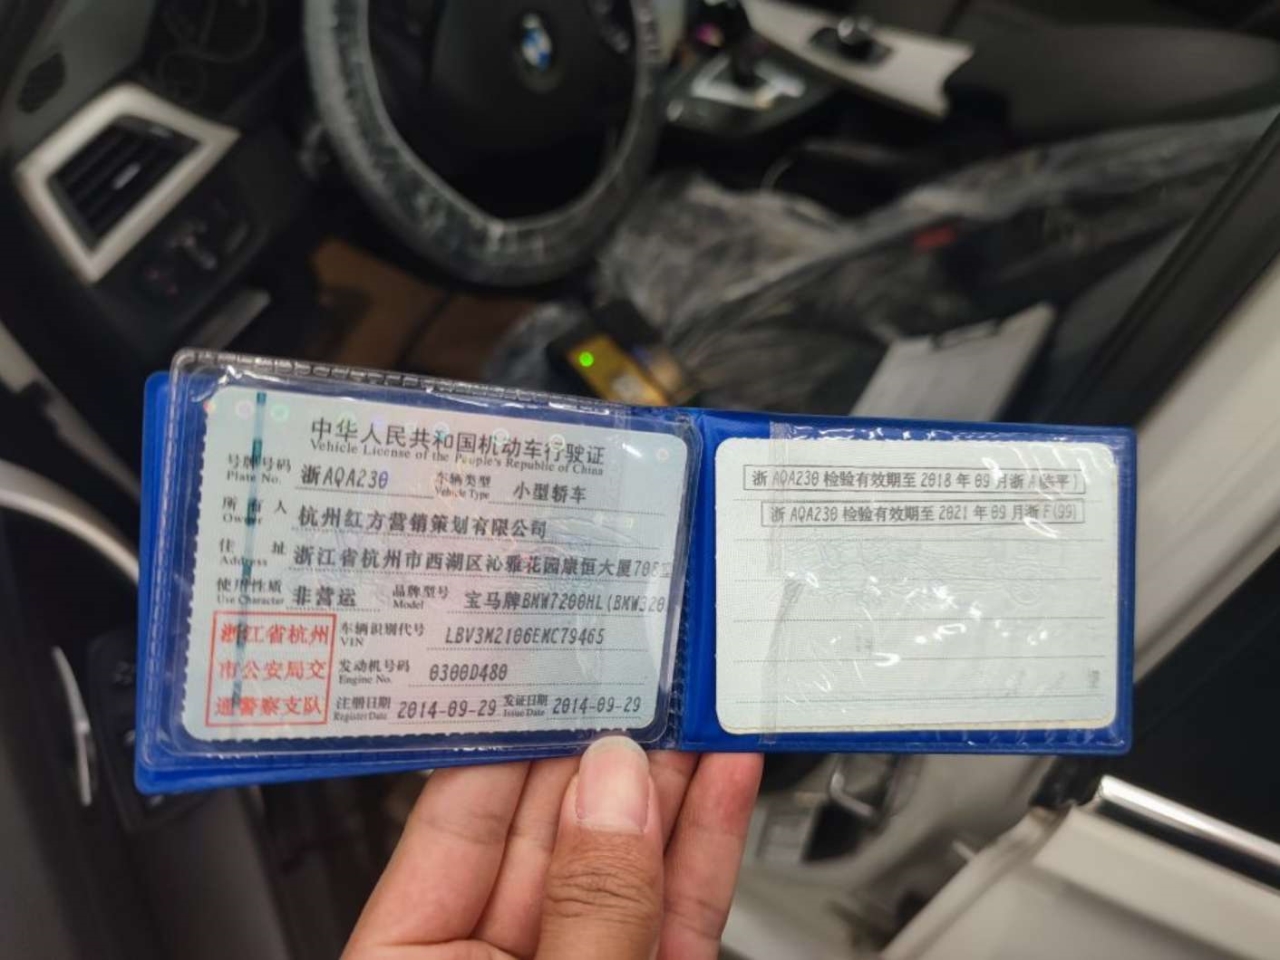 中华人民共和国机动车行驶证
Vehicle License of the People's Republic of China
号牌号码 浙AQA230 车辆类型 小型轿车
Plate No. Vehicle Type
所有人 杭州红方营销策划有限公司
Owner
住址 浙江省杭州市西湖区沁雅花园康恒大厦708室
Address
使用性质 非营运 品牌型号 宝马牌BMW7200HL(BMW320
Use Character Model
浙江省杭州
市公安局交
通警察支队
车辆识别代号 LBV3M2106EMC79465
VIN
发动机号码 0300D480
Engine No.
注册日期 2014-09-29 发证日期 2014-09-29
Register Date Issue Date
浙AQA230检验有效期至2018年09月浙A
浙AQA230检验有效期至2021年09月浙F(99)